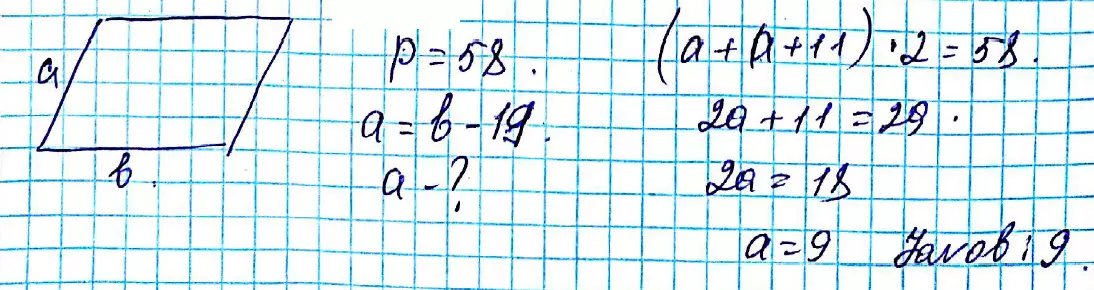 a
b.
P = 58.
a = b - 19.
a - ?
(a + a + 11) · 2 = 58.
2a + 11 = 29.
2a = 18
a = 9 Javob : 9.